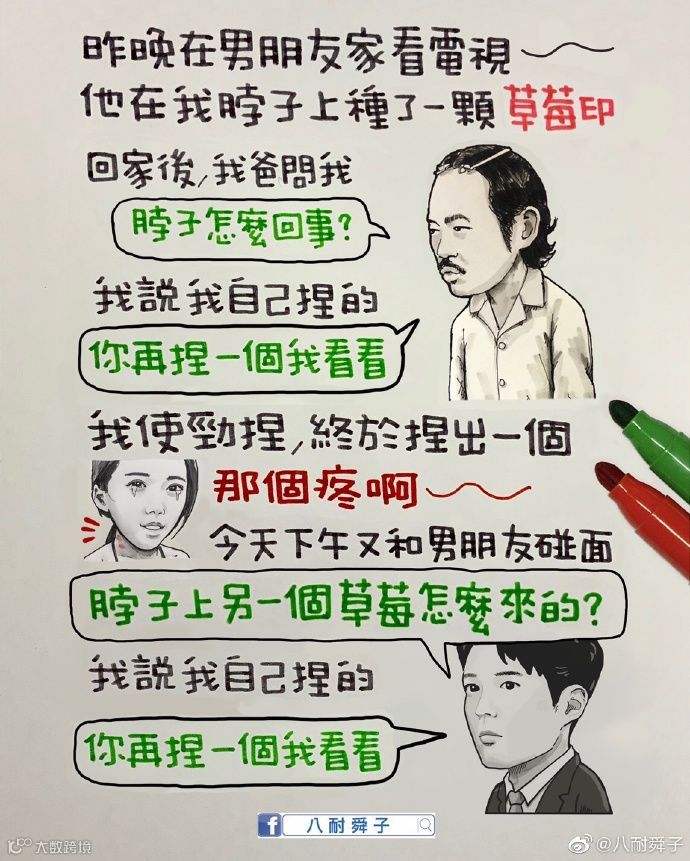 昨晚在男朋友家看電視
他在我脖子上種了一顆草莓印
回家後,我爸問我
脖子怎麼回事?
我說我自己捏的
你再捏一個我看看
我使勁捏,終於捏出一個
那個疼啊
今天下午又和男朋友碰面
脖子上另一個草莓怎麼來的?
我說我自己捏的
你再捏一個我看看
八耐舜子
大数跨境
@八耐舜子